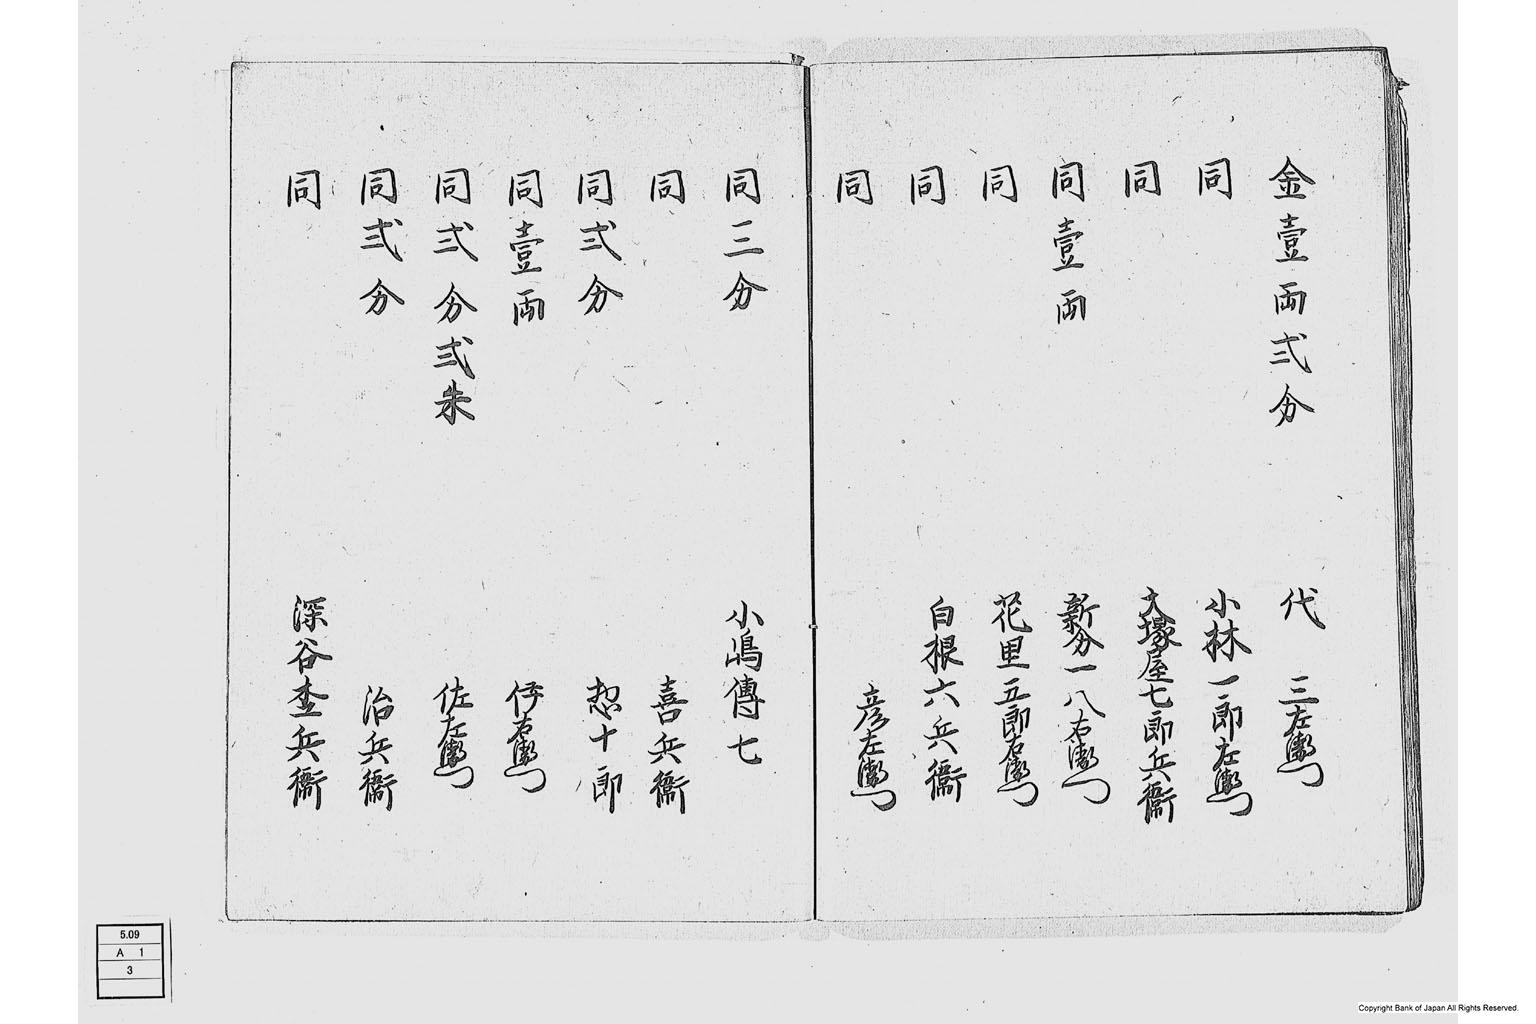 金壹両弐分 代 三左衛門
同 小林一郎左衛門
同 大塚屋七郎兵衛
同壹両 新分一八右衛門
同 花里五郎右衛門
同 白根六兵衛
同 彦左衛門
同三分 小嶋傳七
同 喜兵衛
同弐分 惣十郎
同壹両 伊右衛門
同弐分弐朱 佐左衛門
同弐分 治兵衛
同 深谷杢兵衛
5.09
A 1
3
Copyright Bank of Japan All Rights Reserved.